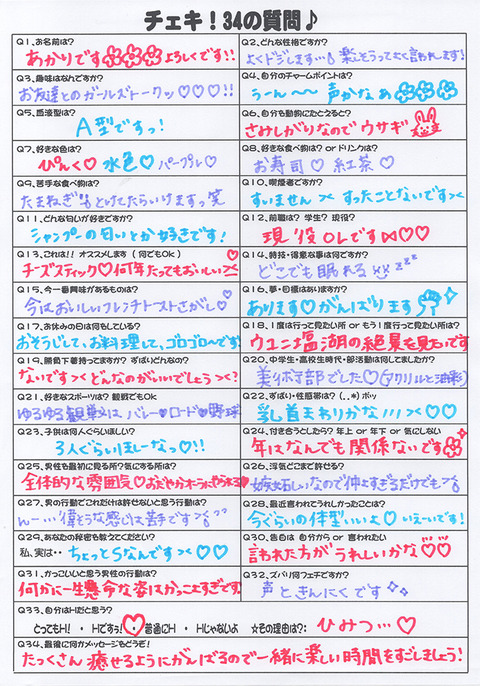 チェキ！34の質問♪
Q1、お名前は？
あかりです よろしくです!!
Q2、どんな性格ですか？
よくドジします…。楽しそうってよく言われます!
Q3、趣味はなんですか？
お友達とのガールズトークッ♡♡♡!!
Q4、自分のチャームポイントは？
うーん〜 声かなぁ
Q5、血液型は？
A型ですっ!
Q6、自分を動物にたとえると？
さみしがりなので ウサギ
Q7、好きな色は？
ぴんく♡ 水色♡ パープル♡
Q8、好きな食べ物は？ or ドリンクは？
お寿司♡ 紅茶♡
Q9、苦手な食べ物は？
たまねぎ とけてたらいけますっ笑
Q10、喫煙者ですか？
すいません >< すったことないです><
Q11、どんな匂いが好きですか？
シャンプーの匂いとか好きです！
Q12、前職は？ 学生？ 現役？
現役OLです♡♡
Q13、これは!! オススメします（何でもOk）
チーズスティック♡何年たってもおいしい><
Q14、特技・得意な事は何ですか？
どこでも眠れる zzz
Q15、今一番興味があるものは？
今はおいしいフレンチトーストさがし♡
Q16、夢・目標はありますか？
あります♡がんばります
Q17、お休みの日は何をしている？
おそうじして、お料理して、ゴロゴロ〜です
Q18、1度は行って見たい所 or もう1度行って見たい所は？
ウユニ塩湖の絶景を見たいです
Q19、勝負下着持ってますか？ ずばりどんなの？
ないです><どんなのがいいでしょう><?
Q20、中学生・高校生時代・部活動は何してましたか？
美術部でした♡(アクリルと油彩)
Q21、好きなスポーツは？ 観戦でもOk
ゆるゆる観戦は、バレー♥ロード♥野球
Q22、ずばい・性感帯は？（..*）ポッ
乳首まわりかな///><♡♡
Q23、子供は何人ぐらいほしい？
3人ぐらいほしーなっ♡!!
Q24、付き合うとしたら？ 年上 or 年下 or 気にしない
年はなんでも関係ないです
Q25、男性を最初に見る所？気にする所は？
全体的な雰囲気♡
Q26、浮気どこまで許せる？
嫉妬しぃなので仲よすぎるだけでも
Q27、男の行動でこれだけは許せないと思う行動は？
んー… 偉そうな感じは苦手です
Q28、最近言われてうれしかったことは？
今ぐらいの体型いいよ♡ いえーいです!
Q29、あなたの秘密を教えてください？
私、実は・・ ちょっとSなんです><♡♡
Q30、告白は 自分から or 言われたい
言われた方がうれしいかな♡♡
Q31、かっこいいと思う男性の行動は？
何かに一生懸命な姿はかっこよすぎです
Q32、ズバリ何フェチですか？
声ときんにくです
Q33、自分はHだと思う？
とってもH! ・ Hですぅ! ・ 普通にH ・ Hじゃないよ ☆その理由は？： ひみつ…♡
Q34、最後に何かメッセージもどうぞ!
たっくさん 癒せるようにがんばるので一緒に楽しい時間をすごしましょう！